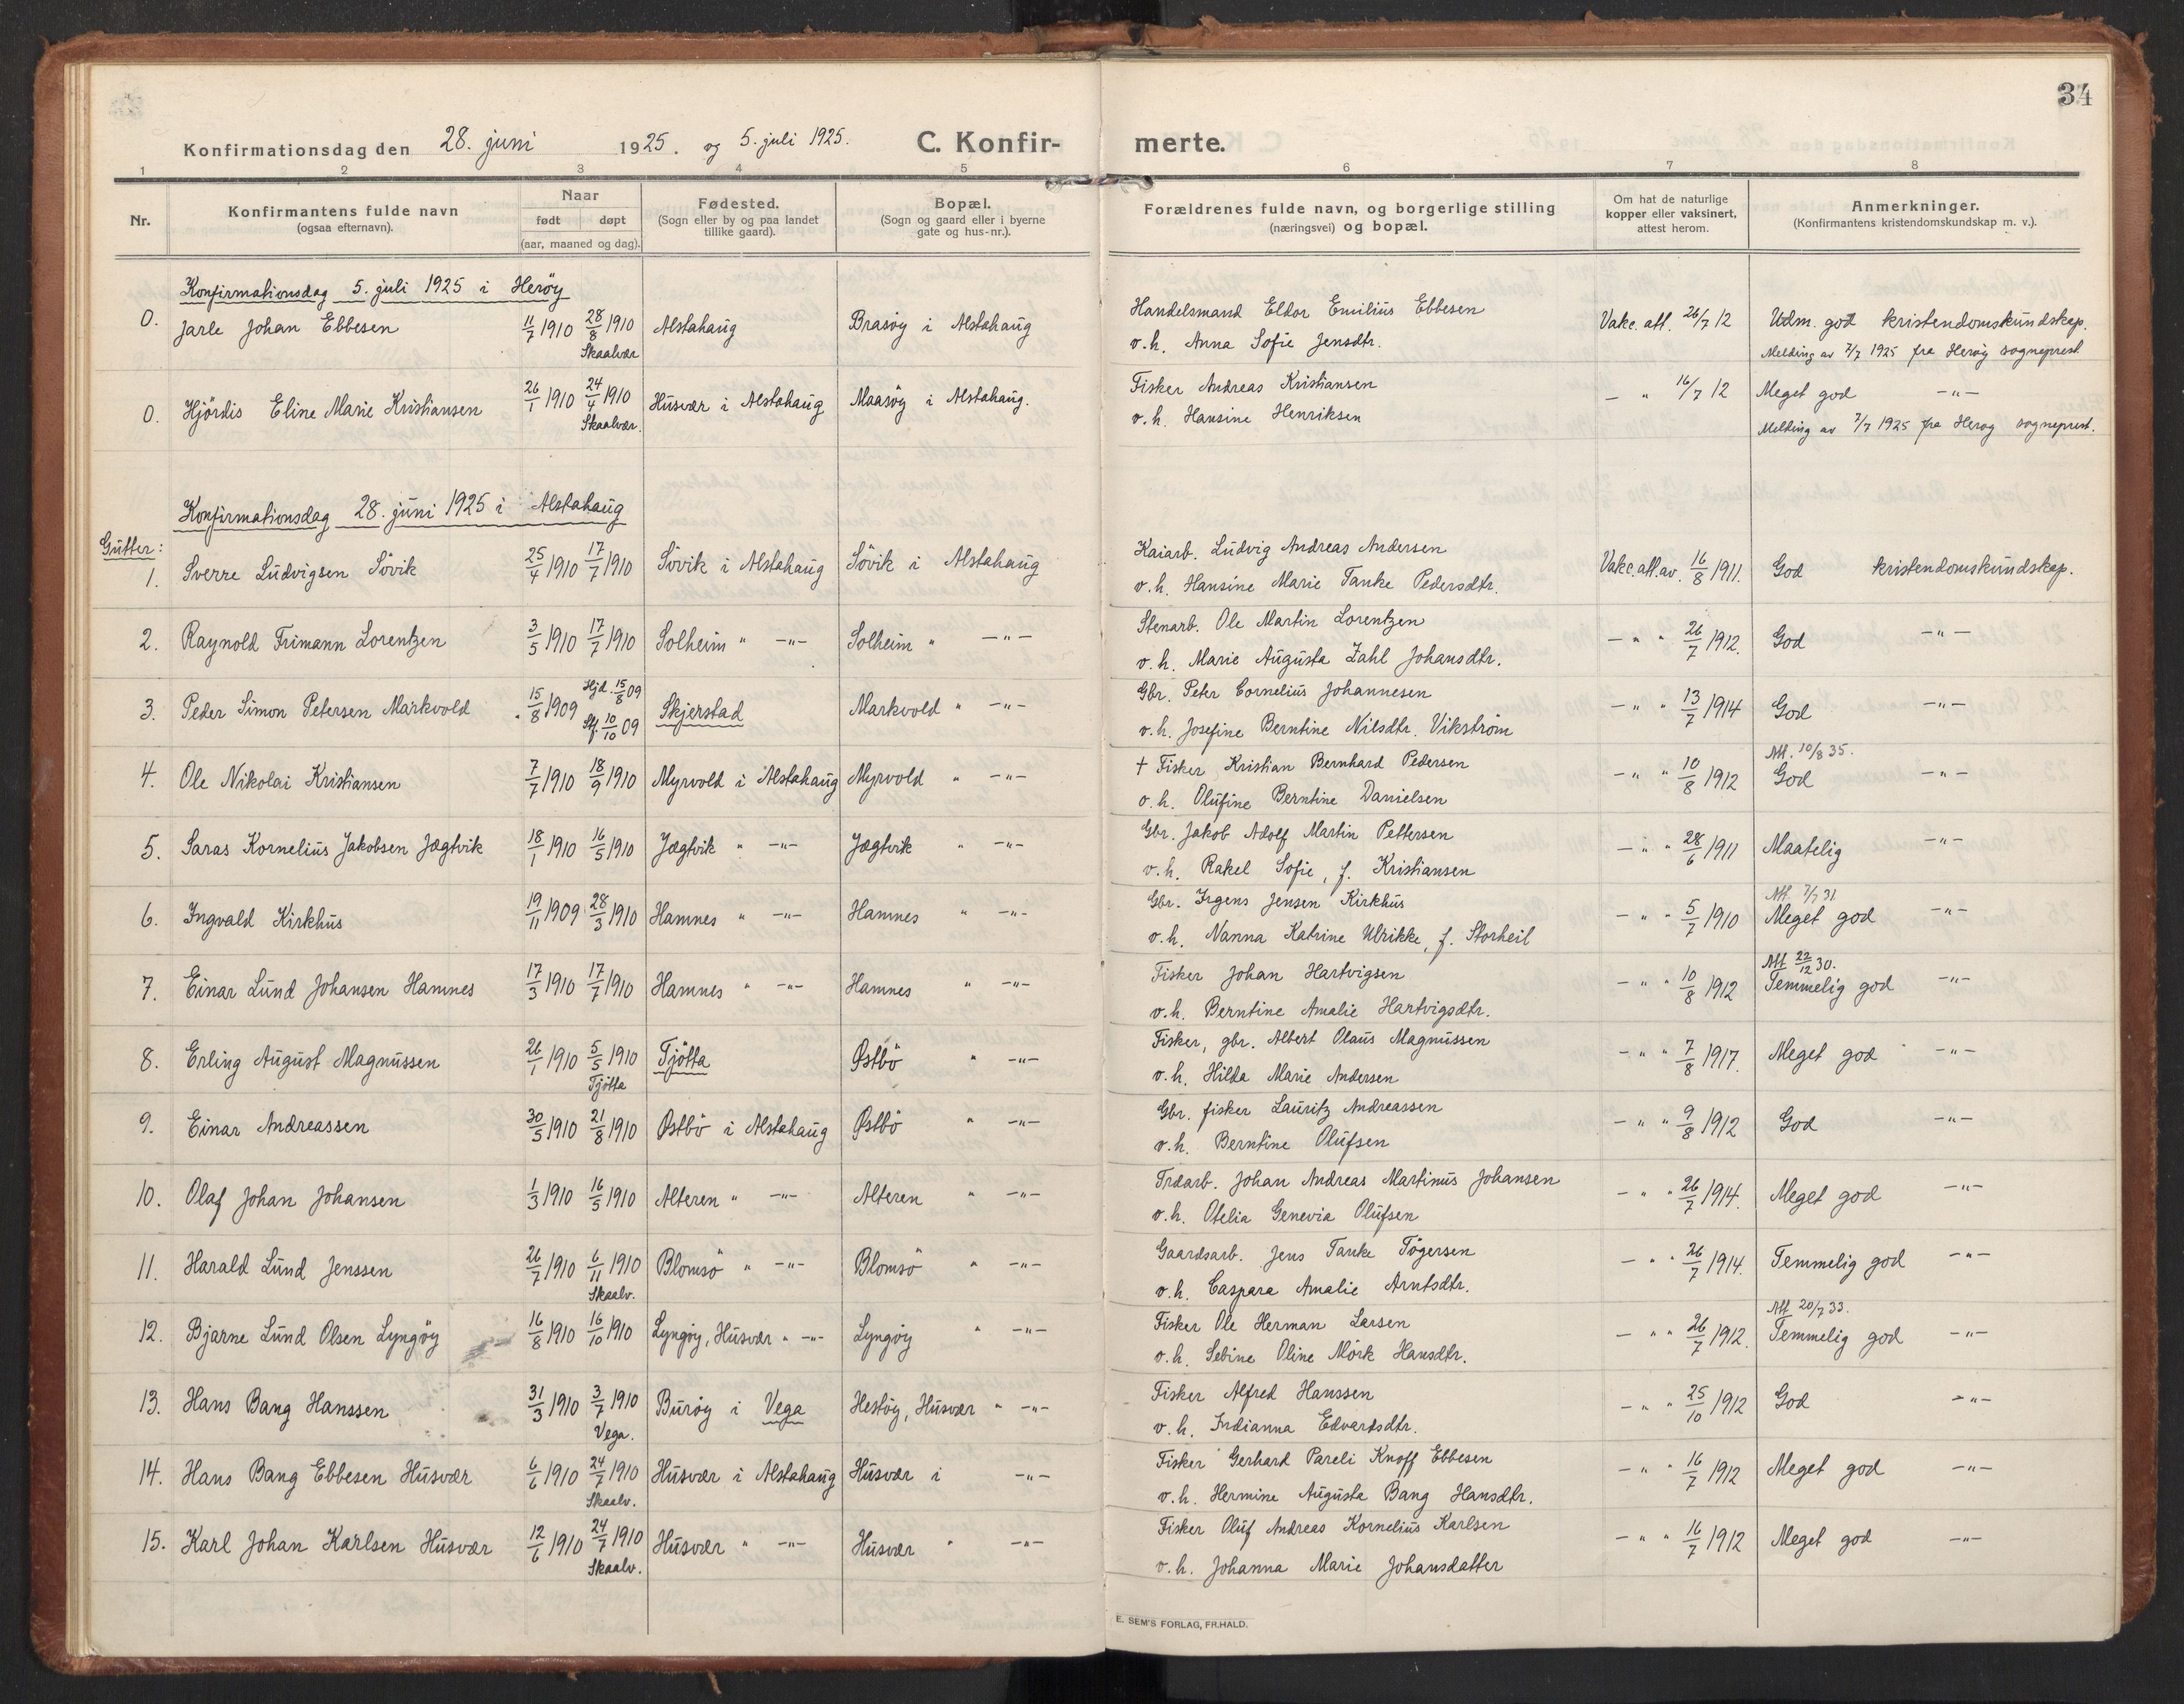 34
Konfirmationsdag den 28. juni 1925. og 5. juli 1925. C. Konfirmerte.
1 2 3 4 5 6 7 8
Nr.
Konfirmantens fulde navn
(ogsaa efternavn).
Naar
født døpt
(aar, maaned og dag).
Fødested.
(Sogn eller by og paa landet
tillike gaard).
Bopæl.
(Sogn og gaard eller i byerne
gate og hus-nr.).
Forældrenes fulde navn, og borgerlige stilling
(næringsvei) og bopæl.
Om hat de naturlige
kopper eller vaksinert,
attest herom.
Anmerkninger.
(Konfirmantens kristendomskundskap m. v.).
Konfirmationsdag 5. juli 1925 i Herøy
0. Jarle Johan Ebbesen 11/7 1910 28/8 1910 Alstahaug Brasøy i Alstahaug Handelsmand Eldor Emilius Ebbesen Vakc. att. 26/7 12 Udm. god kristendomskundskap.
Skaalvær v. h. Anna Sofie Jensdtr. Melding av 7/7 1925 fra Herøy sogneprest
0. Hjördis Eline Marie Kristiansen 26/1 1910 24/4 1910 Husvær i Alstahaug Maasøy i Alstahaug. Fisker Andreas Kristiansen — " 16/7 12 Meget god —"—
Skaalvær. v. h. Hansine Henriksen Melding av 7/7 1925 fra Herøy sogneprest.
Konfirmationsdag 28. juni 1925 i Alstahaug
Gutter:
1. Sverre Ludvigsen Søvik 25/4 1910 17/7 1910 Søvik i Alstahaug Søvik i Alstahaug Kaiarb. Ludvig Andreas Andersen Vakc. att. av. 16/8 1911. God kristendomskundskap.
v. h. Hansine Marie Tanke Pedersdtr.
2. Raynold Frimann Lorentzen 3/5 1910 17/7 1910 Solheim " —"— Solheim " —"— Stenarb. Ole Martin Lorentzen — " " 26/7 1912. God —"—
v. h. Marie Augusta Zahl Johansdtr.
3. Peder Simon Petersen Markvold 15/8 1909 Hjd. 15/8 09 Skjerstad Markvold " —"— Gbr. Peter Cornelius Johannesen — " " 13/7 1914 God —"—
Stf. 10/10 09 v. h. Josefine Berntine Nilsdtr. Vikstrøm
Att. 10/8 35.
4. Ole Nikolai Kristiansen 7/7 1910 18/9 1910 Myrvold i Alstahaug Myrvold " —"— † Fisker Kristian Bernhard Pedersen — " " 10/8 1912 God —"—
o. h. Olufine Berntine Danielsen
5. Saras Kornelius Jakobsen Jægtvik 18/1 1910 16/5 1910 Jægtvik " —"— Jægtvik " —"— Gbr. Jakob Adolf Martin Pettersen — " " 28/6 1911 Maatelig —"—
v. h. Rakel Sofie, f. Kristiansen
Att. 7/7 31.
6. Ingvald Kirkhus 19/11 1909 28/3 1910 Hamnes " —"— Hamnes " —"— Gbr. Irgens Jensen Kirkhus — " " 5/7 1910 Meget god —"—
v. h. Nanna Katrine Ulrikke, f. Storheil
Att 22/12 30.
7. Einar Lund Johansen Hamnes 17/3 1910 17/7 1910 Hamnes " —"— Hamnes " —"— Fisker Johan Hartvigsen — " " 10/8 1912 Temmelig god —"—
v. h. Berntine Amalie Hartvigsdtr.
8. Erling August Magnussen 26/1 1910 5/5 1910 Tjøtta Østbö " —"— Fisker, gbr. Albert Olaus Magnussen — " " 7/8 1917. Meget god —"—
Tjøtta v. h. Hilda Marie Andersen
9. Einar Andreassen 30/5 1910 21/8 1910 Østbö i Alstahaug Østbö " —"— Gbr. fisker Lauritz Andreassen — " " 9/8 1912 God —"—
v. h. Berntine Olufsen
10. Olaf Johan Johansen 1/3 1910 16/5 1910 Alteren " —"— Alteren " —"— Trdarb. Johan Andreas Martinus Johansen — " " 26/7 1914. Meget god —"—
v. h. Otelia Genevia Olufsen
11. Harald Lund Jenssen 26/7 1910 6/11 1910 Blomsö " —"— Blomsö " —"— Gaardsarb. Jens Tanke Tögersen — " " 26/7 1914. Temmelig god —"—
Skaalv. v. h. Caspara Amalie Arntsdtr.
Att 20/7 33.
12. Bjarne Lund Olsen Lyngöy 16/8 1910 16/10 1910 Lyngöy, Husvær " —"— Lyngöy " —"— Fisker Ole Herman Larsen — " " 26/7 1912. Temmelig god —"—
v. h. Sebine Oline Mörk Hansdtr.
13. Hans Bang Hanssen 31/3 1910 3/7 1910 Buröy i Vega Hestöy, Husvær " —"— Fisker Alfred Hanssen — " " 25/10 1912 God —"—
Vega. v. h. Indianna Edvardsdtr.
14. Hans Bang Ebbesen Husvær 6/6 1910 24/7 1910 Husvær i Alstahaug Husvær i —"— Fisker Gerhard Pareli Knoff Ebbesen — " " 16/7 1912 Meget god —"—
Skaalv. v. h. Hermine Augusta Bang Hansdtr.
15. Karl Johan Karlsen Husvær 12/6 1910 24/7 1910 Husvær " —"— Husvær " —"— Fisker Oluf Andreas Kornelius Karlsen — " " 16/7 1912 Meget god —"—
Skaalv. v. h. Johanna Marie Johansdatter
E. SEM'S FORLAG, FR.HALD.